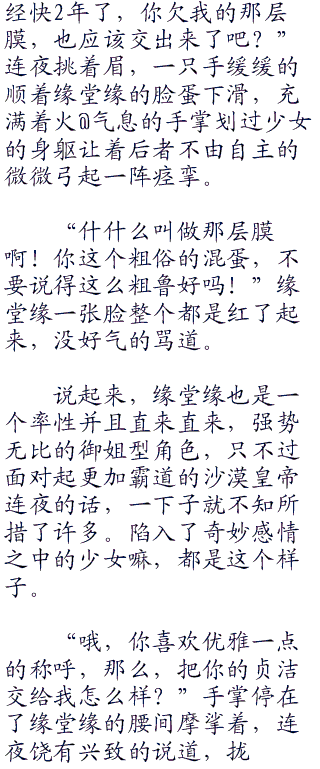 经快2年了，你欠我的那层
膜，也应该交出来了吧？”
连夜挑着眉，一只手缓缓的
顺着缘堂缘的脸蛋下滑，充
满着火@气息的手掌划过少女
的身躯让着后者不由自主的
微微弓起一阵痉挛。
“什什么叫做那层膜
啊！你这个粗俗的混蛋，不
要说得这么粗鲁好吗！”缘
堂缘一张脸整个都是红了起
来，没好气的骂道。
说起来，缘堂缘也是一
个率性并且直来直来，强势
无比的御姐型角色，只不过
面对起更加霸道的沙漠皇帝
连夜的话，一下子就不知所
措了许多。陷入了奇妙感情
之中的少女嘛，都是这个样
子。
“哦，你喜欢优雅一点
的称呼，那么，把你的贞洁
交给我怎么样？”手掌停在
了缘堂缘的腰间摩挲着，连
夜饶有兴致的说道，拢